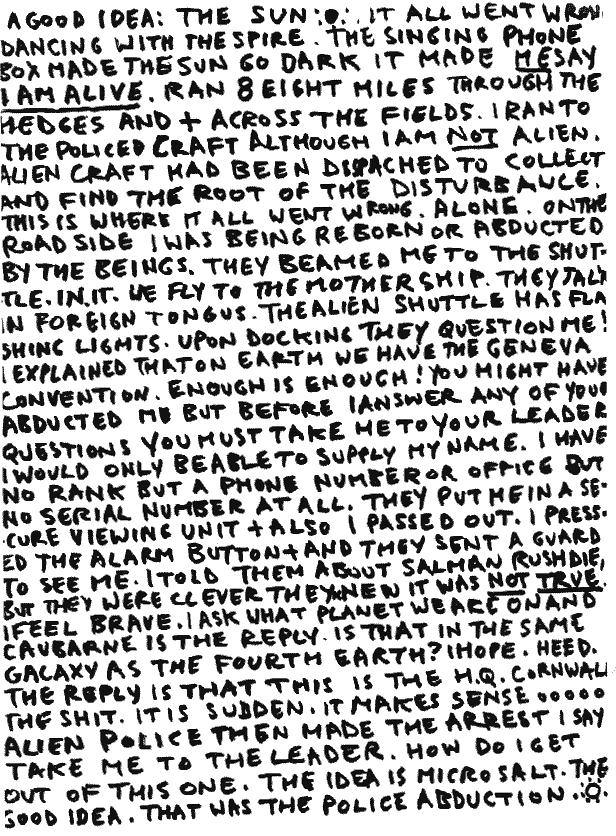 A GOOD IDEA: THE SUN :O: . IT ALL WENT WRON
DANCING WITH THE SPIRE. THE SINGING PHONE
BOX MADE THE SUN GO DARK IT MADE ME SAY
I AM ALIVE. RAN 8 EIGHT MILES THROUGH THE
HEDGES AND + ACROSS THE FIELDS. I RAN TO
THE POLICED CRAFT ALTHOUGH I AM NOT ALIEN.
ALIEN CRAFT HAD BEEN DISPACHED TO COLLECT
AND FIND THE ROOT OF THE DISTURBANCE.
THIS IS WHERE IT ALL WENT WRONG. ALONE. ON THE
ROAD SIDE I WAS BEING REBORN OR ABDUCTED
BY THE BEINGS. THEY BEAMED ME TO THE SHUT-
TLE. IN. IT. WE FLY TO THE MOTHERSHIP. THEY TALK
IN FOREIGN TONGUS. THE ALIEN SHUTTLE HAS FLA
SHING LIGHTS. UPON DOCKING THEY QUESTION ME!
I EXPLAINED THAT ON EARTH WE HAVE THE GENEVA
CONVENTION. ENOUGH IS ENOUGH! YOU MIGHT HAVE
ABDUCTED ME BUT BEFORE I ANSWER ANY OF YOUR
QUESTIONS YOU MUST TAKE ME TO YOUR LEADER
I WOULD ONLY BE ABLE TO SUPPLY MY NAME. I HAVE
NO RANK BUT A PHONE NUMBER OR OFFICE BUT
NO SERIAL NUMBER AT ALL. THEY PUT ME IN A SE-
CURE VIEWING UNIT + ALSO I PASSED OUT. I PRESS-
ED THE ALARM BUTTON + AND THEY SENT A GUARD
TO SEE ME. I TOLD THEM ABOUT SALMAN RUSHDIE,
BUT THEY WERE CLEVER THEY KNEW IT WAS NOT TRUE.
I FEEL BRAVE. I ASK WHAT PLANET WE ARE ON AND
CAUBARNE IS THE REPLY. IS THAT IN THE SAME
GALAXY AS THE FOURTH EARTH? I HOPE. HEED.
THE REPLY IS THAT THIS IS THE H.Q. CORNWALL
THE SHIT. IT IS SUDDEN. IT MAKES SENSE ooooo
ALIEN POLICE THEN MADE THE ARREST I SAY
TAKE ME TO THE LEADER. HOW DO I GET
OUT OF THIS ONE. THE IDEA IS MICRO SALT. THE
GOOD IDEA. THAT WAS THE POLICE ABDUCTION. :O: